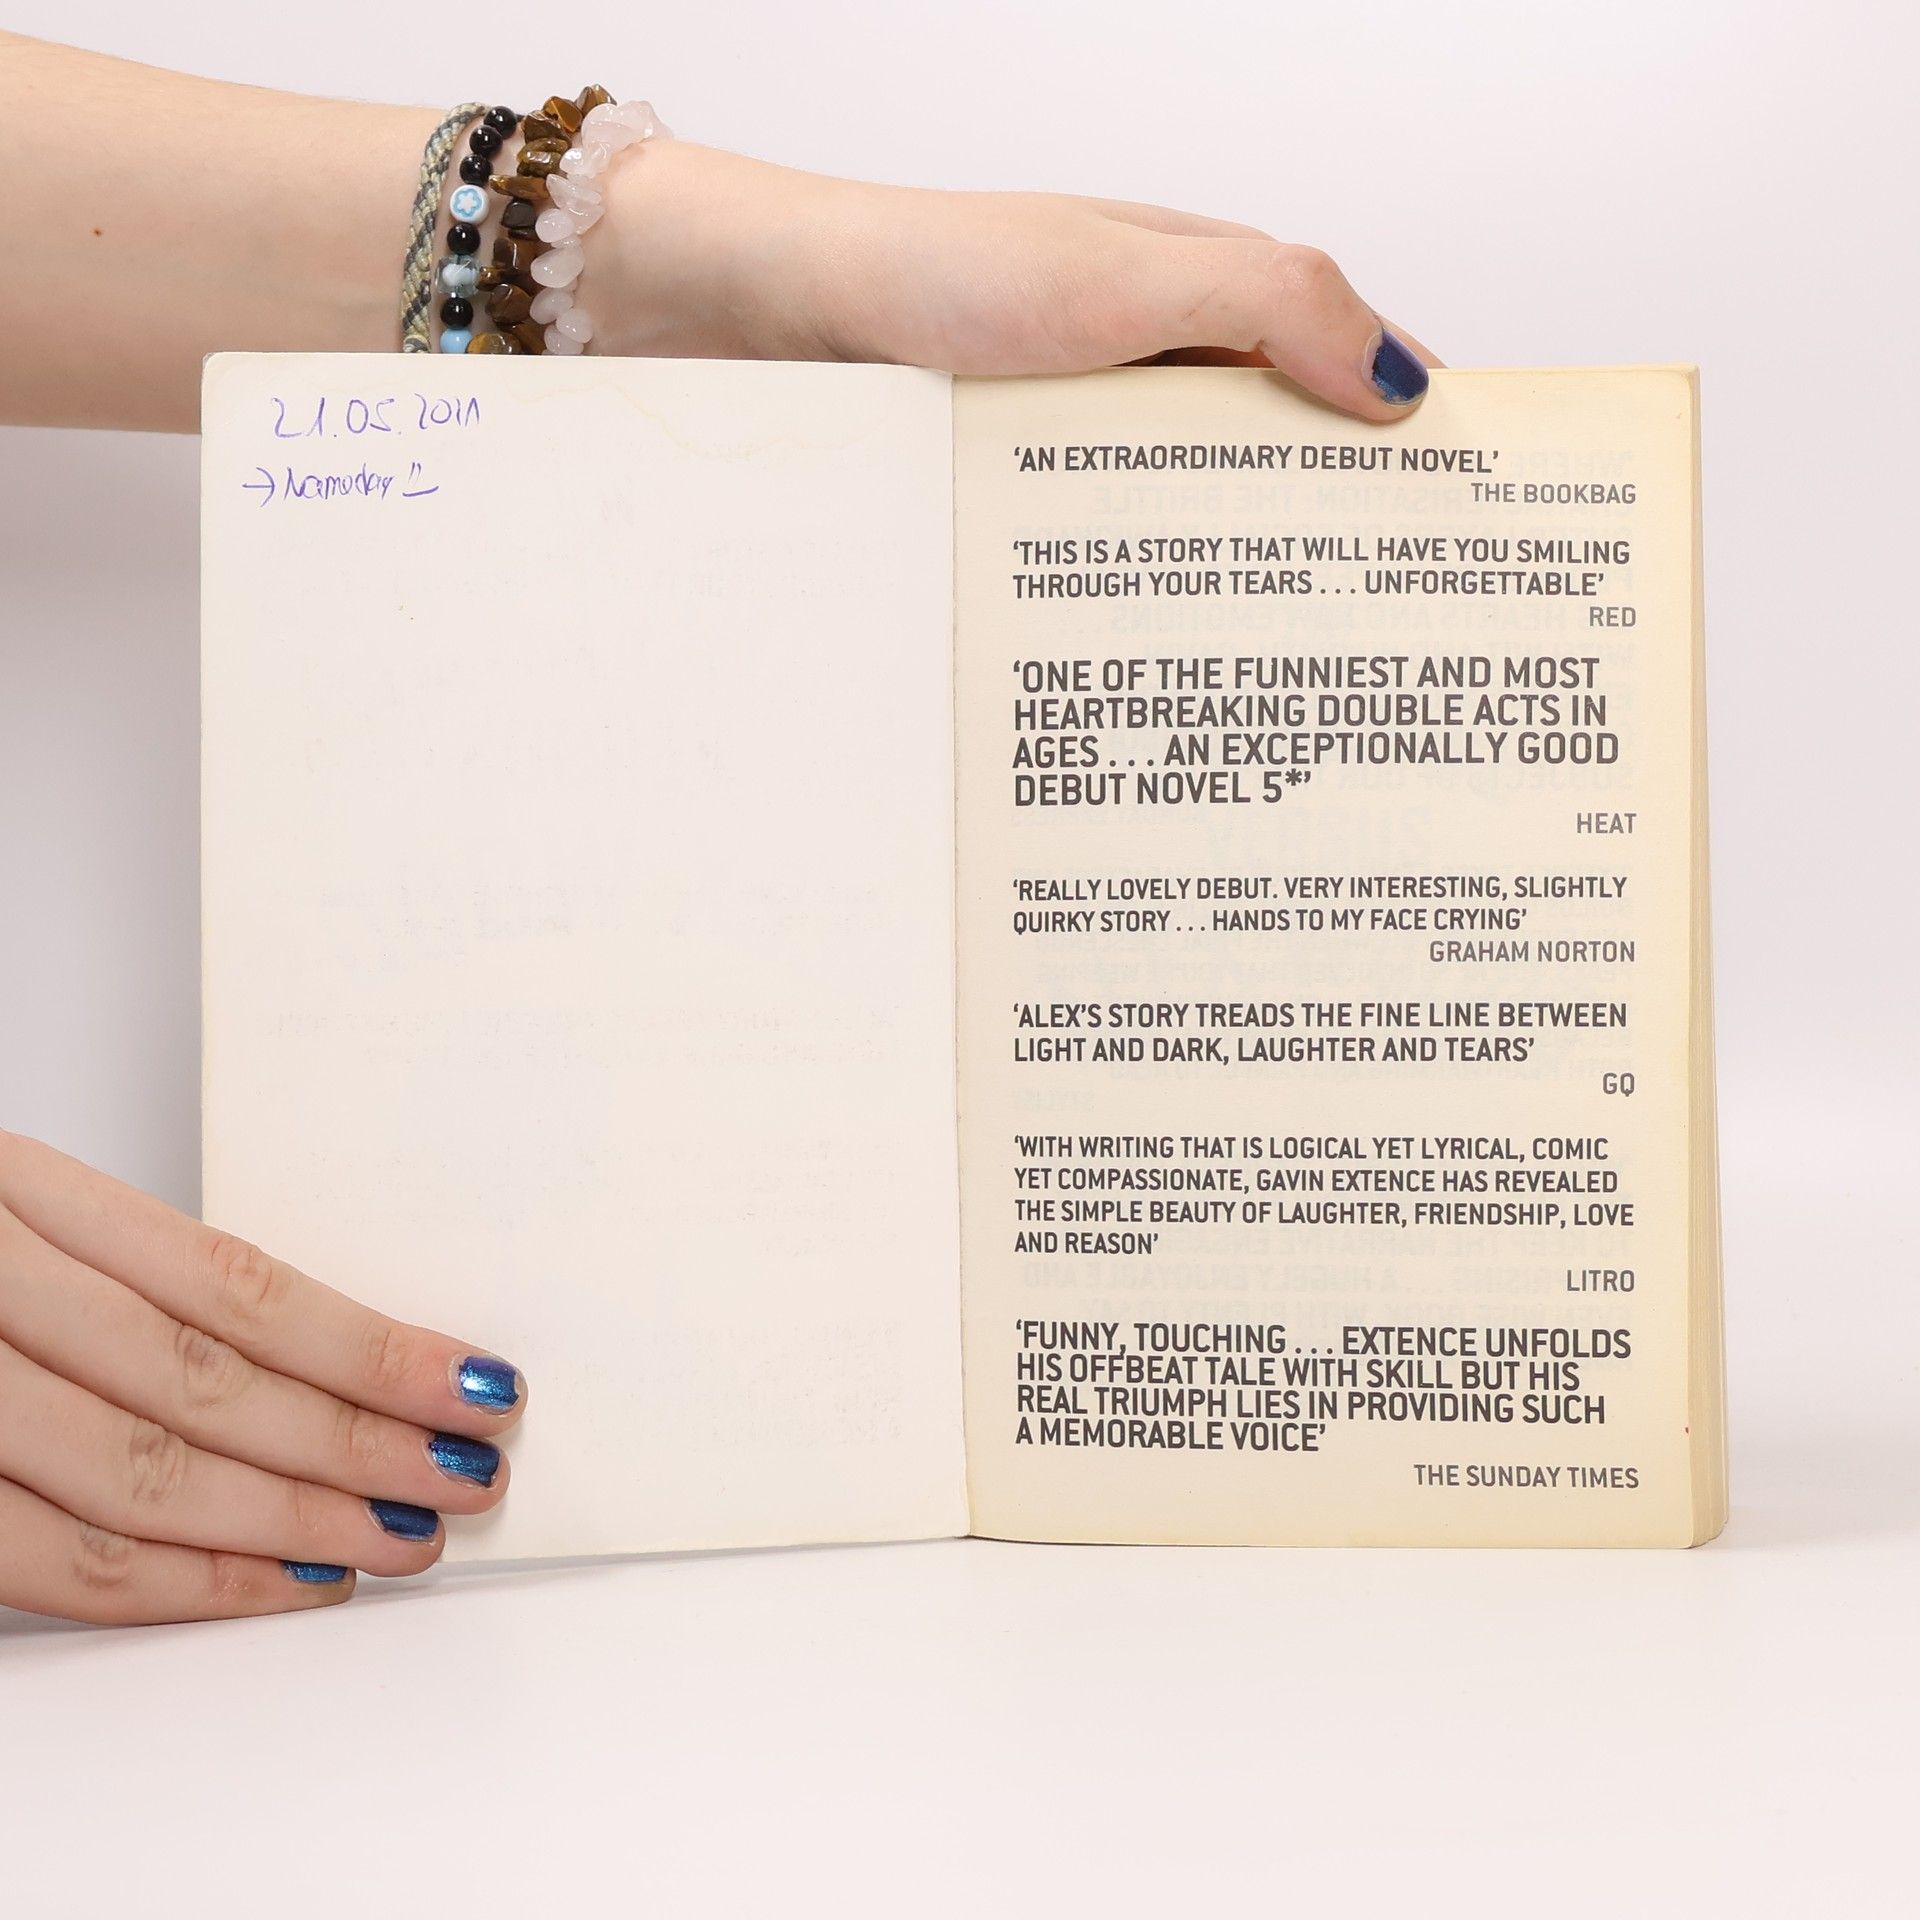 21.05.2021
→ Nameday !!
‘AN EXTRAORDINARY DEBUT NOVEL’
THE BOOKBAG
‘THIS IS A STORY THAT WILL HAVE YOU SMILING
THROUGH YOUR TEARS . . . UNFORGETTABLE’
RED
‘ONE OF THE FUNNIEST AND MOST
HEARTBREAKING DOUBLE ACTS IN
AGES . . . AN EXCEPTIONALLY GOOD
DEBUT NOVEL 5*’
HEAT
‘REALLY LOVELY DEBUT. VERY INTERESTING, SLIGHTLY
QUIRKY STORY . . . HANDS TO MY FACE CRYING’
GRAHAM NORTON
‘ALEX’S STORY TREADS THE FINE LINE BETWEEN
LIGHT AND DARK, LAUGHTER AND TEARS’
GQ
‘WITH WRITING THAT IS LOGICAL YET LYRICAL, COMIC
YET COMPASSIONATE, GAVIN EXTENCE HAS REVEALED
THE SIMPLE BEAUTY OF LAUGHTER, FRIENDSHIP, LOVE
AND REASON’
LITRO
‘FUNNY, TOUCHING . . . EXTENCE UNFOLDS
HIS OFFBEAT TALE WITH SKILL BUT HIS
REAL TRIUMPH LIES IN PROVIDING SUCH
A MEMORABLE VOICE’
THE SUNDAY TIMES